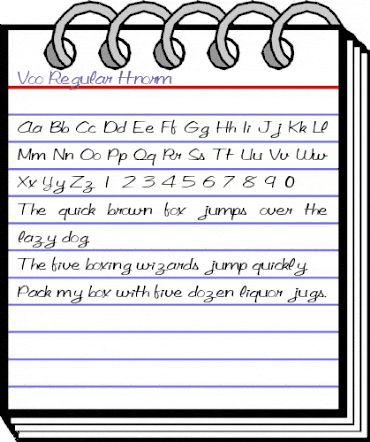 Voo Regular Hnorm
Aa Bb Cc Dd Ee Ff Gg Hh Ii Jj Kk Ll
Mm Nn Oo Pp Qq Rr Ss Tt Uu Vv Ww
Xx Yy Zz 1 2 3 4 5 6 7 8 9 0
The quick brown fox jumps over the
lazy dog
The five boxing wizards jump quickly.
Pack my box with five dozen liquor jugs.